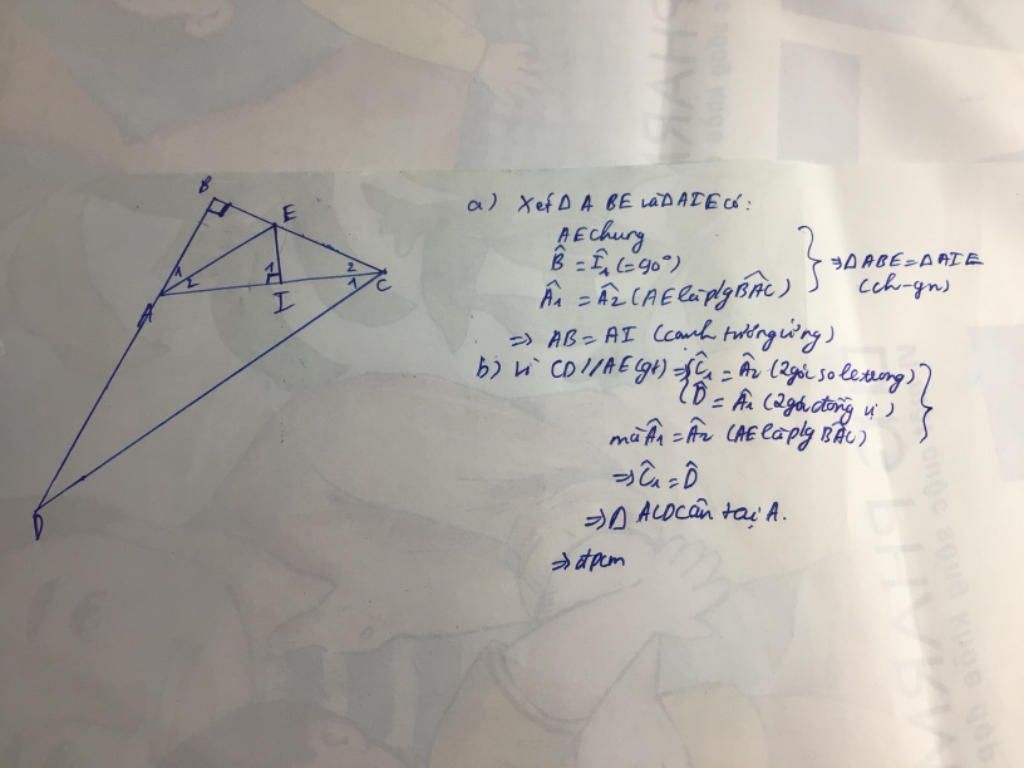 B
E
1
2
1
2
1
A
I
C
D
a) Xét Δ ABE và ΔAIE có:
AE chung
B̂ = Î₁ (=90°)
Â₁ = Â₂ (AE là p/g BÂC)
⇒ Δ ABE = Δ AIE
(ch-gn)
⇒ AB = AI (cạnh tương ứng)
b) Vì CD // AE (gt) ⇒ { Ĉ₁ = Â₂ (2 góc so le trong)
D̂ = Â₁ (2 góc đồng vị)
mà Â₁ = Â₂ (AE là p/g BÂC)
⇒ Ĉ₁ = D̂
⇒ Δ ACD cân tại A.
⇒ đpcm